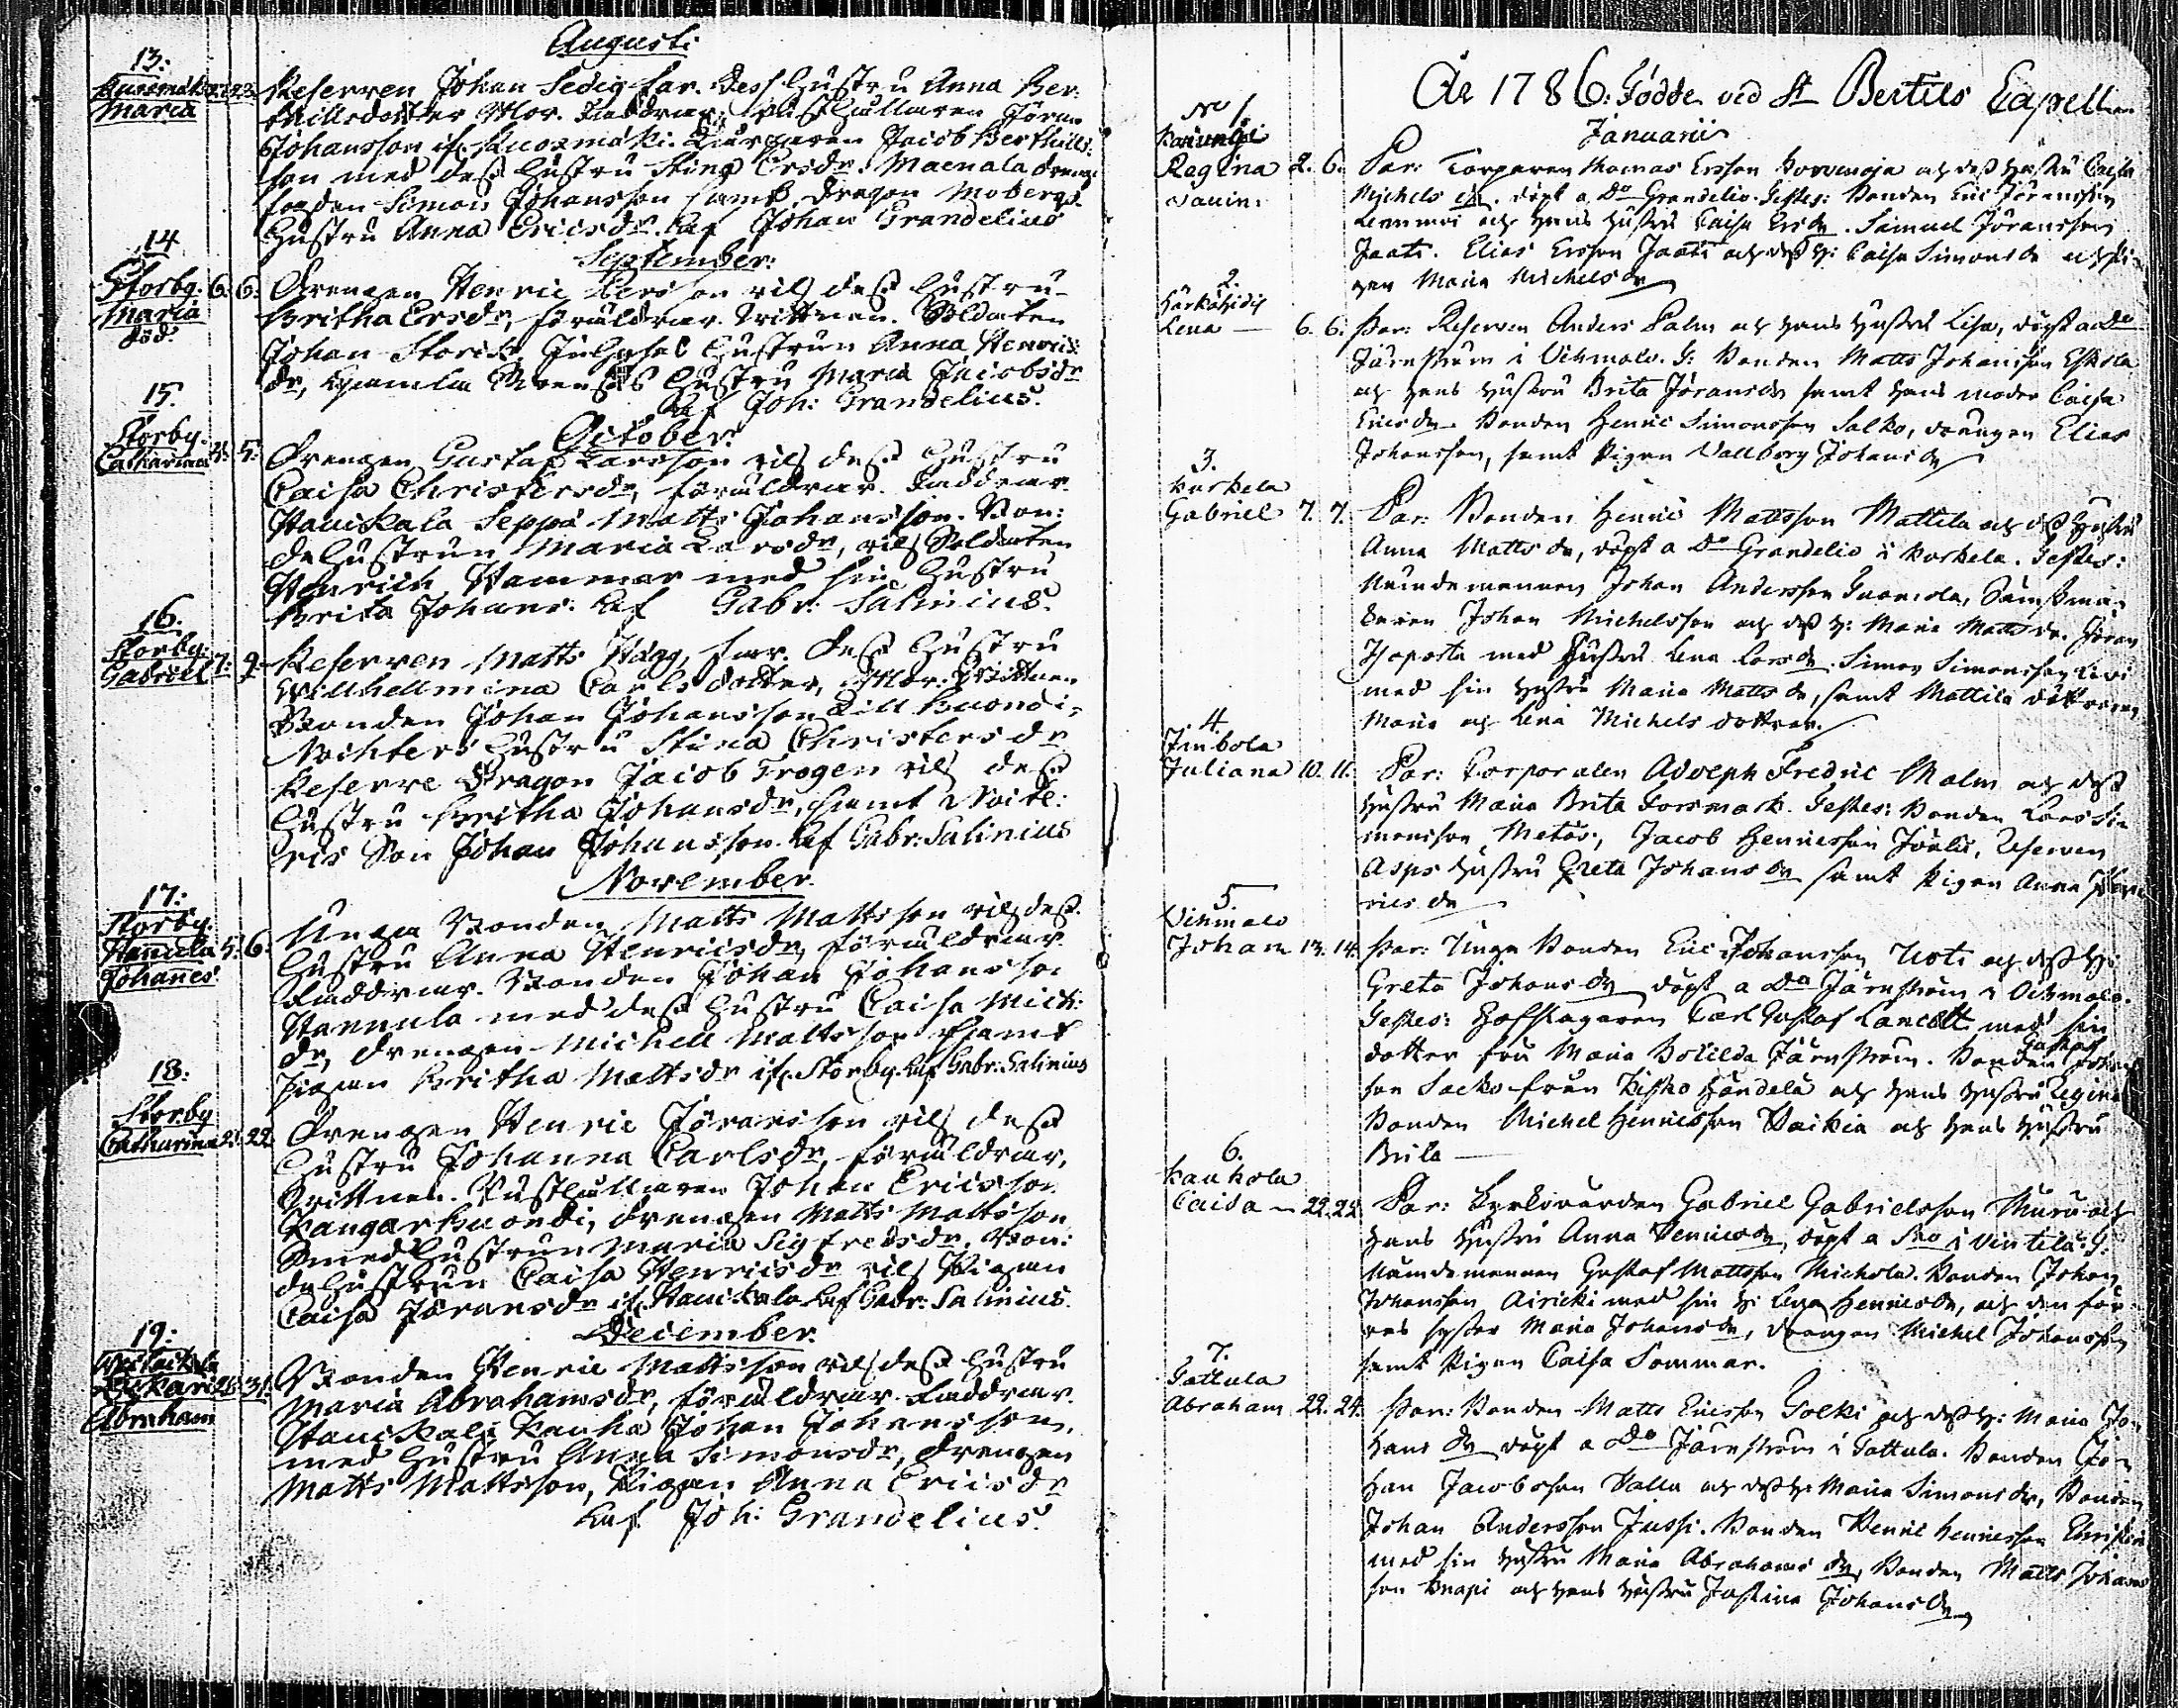 Augusti
13:
Kuosmäki 22. 23.
Maria
Reserven Johan Sedig far. Dess Hustru Anna Ber:
thillsdotter Mor. Faddrar: Rusthållaren Jöran
Johansson if. Kuosmäki. Jacob Berthills:
son med dess Hustru Stina Ersdr. Maenala
Simon Johansson samt Dragon Mobergs
Hustru Anna Ericsdr. af Johan Grandelius
September:
14
Storby. 6. 6.
Maria
död.
Drengen Henric Larsson och dess Hustru
Britha Ersdr, föräldrar. Vittnen. Soldaten
Johan Storick, Hustrun Anna Henrics:
dr, Gamla Hustru Maria Jacobsdr
af Joh: Grandelius.
October.
15.
Storby.
Catharina 4. 5.
Drengen Gustaf Larsson och dess Hustru
Caisa Christersdr, föräldrar. Faddrar
Hauckala Seppä Matts Johansson. Bon:
deHustrun Maria Larsdr, och Soldaten
Henrich Hammar med sin Hustru
Brita Johans: af Gabr: Salinius.
16.
Storby.
Gabriell 7: 9.
Reserven Matts Hägg, far. Dess Hustru
Willhellmina Carlsdotter, Mor. Vittnen
Bonden Johan Johansson Lill Kuondi,
Nohters Hustru Stina Christersdr
Reserve Dragon Jacob Trogen och dess
Hustru Britha Johansdr, samt
Son Johan Johansson. af Gabr: Salinius
November.
17:
Storby.
Hannula 5: 6:
Johanes
Unga Bonden Matts Mattsson och dess
Hustru Anna Henricsdr, föräldrar.
Faddrar. Bonden Johan Johansson
Hannula med dess Hustru Caisa Mich:
dr, drengen Michell Mattsson samt
pigan Britha Mattsdr if. Storby. af Gabr: Salinius
18:
Storby
Catharina 21. 22.
Drengen Henric Jöransson och dess
Hustru Johanna Carlsdr, föräldrar,
Vittnen. Rusthållaren Johan Ericsson
Kangarkuondi, drengen Matts Mattsson
SmedHustrun Maria Sigfredsdr. Bon:
deHustrun Caisa Henricsdr och Pigan
Caisa Jöransdr if. Hauckala af Gabr: Salinius.
December.
19:
31.
Abraham
Bonden Henric Mattsson och dess Hustru
Maria Abrahamsdr, föräldrar. Faddrar.
Hauckala Kauka Johan Johansson,
med Hustru Anna Simonsdr, drengen
Matts Mattsson, Pigan Anna Ericsdr
af Joh: Grandelius.
År 1786. Födde ved St Bertils Capell
Januarii
No 1.
Regina 2. 6.
Par: Torparen Thomas Ersson och dess hustru Caisa
Michels dr. döpt a Do Grandelio. Testes: Bonden Eric Jöransson
och hans hustru Caisa Ersdr. Samuel Jöransson
Jaati. Elias Ersson Jaati och dess h: Caisa Simonsdr och pi
gan Maria Michelsdr
2.
Härkähidis
Lena — 6. 6.
Par: Reserven Anders Palm och hans hustru Lisa, döpt a Do
Järnström i Vihmalo. T: Bonden Matts Johansson Eskola
och hans hustru Brita Jöransdr samt hans moder Caisa
Ericsdr. Bonden Henric Simonsson Salko, drängen Elias
Johansson, samt Pigan Vallborg Johansdr
3.
Korkela
Gabriel 7. 7.
Par: Bonden Henric Mattsson Mattila och dess hustru
Anna Mattsdr, döpt a Do Grandelio i Korkela. Testes:
Nämdemannen Johan Andersson
Johan Michelsson och dess h: Maria Mattsdr. Jöran
med hustru Lena Larsdr. Simon Simonsson
med sin hustru Maria Mattsdr, samt Mattila döttrarna
Maria och Lena Michels döttrar.
4.
Timbola
Juliana 10. 11.
Par: Corporalen Adolph Fredric Malm och dess
hustru Maria Brita Forsmark. Testes: Bonden Lars Si
monsson Metäs, Jacob Henricsson, Reserven
Asps hustru Greta Johansdr samt Pigan Anna
rics dr
5.
Vihmalo
Johan 13. 14.
Par: Unga Bonden Eric Johansson Uoti och dess h:
Greta Johansdr döpt a Do Järnström i Vihmalo.
Testes: Carl Gustaf med sin
dotter fru Maria Botilda Järnström. Bonden Gustaf Johans
son Sacko från Kesko Händelä och hans hustru Regina
Bonden Michel Henricsson Vaikia och hans hustru
Brita —
6.
Kaukola
Caisa — 22. 22.
Par: Kyrkovärden Gabriel Gabrielsson Muru och
hans hustru Anna Henricsdr, döpt a i Vintela. T:
Nämdemannen Gustaf Mattsson Michola. Bonden Johan
Johansson Airicki med sin h: Lena Henricsdr, och den för
ras syster Maria Johansdr, drängen Michel Johansson
samt Pigan Caisa Sommar.
7.
Tattula
Abraham 22. 24.
Par: Bonden Matts Ericsson Solki och dess h: Maria Jo
hans dr döpt a Do Järnström i Tattula. Bonden Jo
han Jacobsson Valla och dess h: Maria Simonsdr, Bonden
Johan Andersson Jussi. Bonden Henric Henricsson
med sin hustru Maria Abrahams dr, Bonden Matts Johans
son Knapi och hans hustru Justina Johansdr